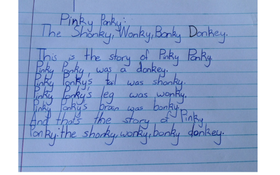 Pinky Ponky:
The Shonky, Wonky, Bonky Donkey.
This is the story of Pinky Ponky
Pinky Ponky was a donkey.
Pinky Ponky's tail was shonky.
Pinky Ponky's leg was wonky.
Pinky Ponky's brain was bonky.
And that's the story of Pinky
Ponky: the shonky, wonky, bonky donkey.